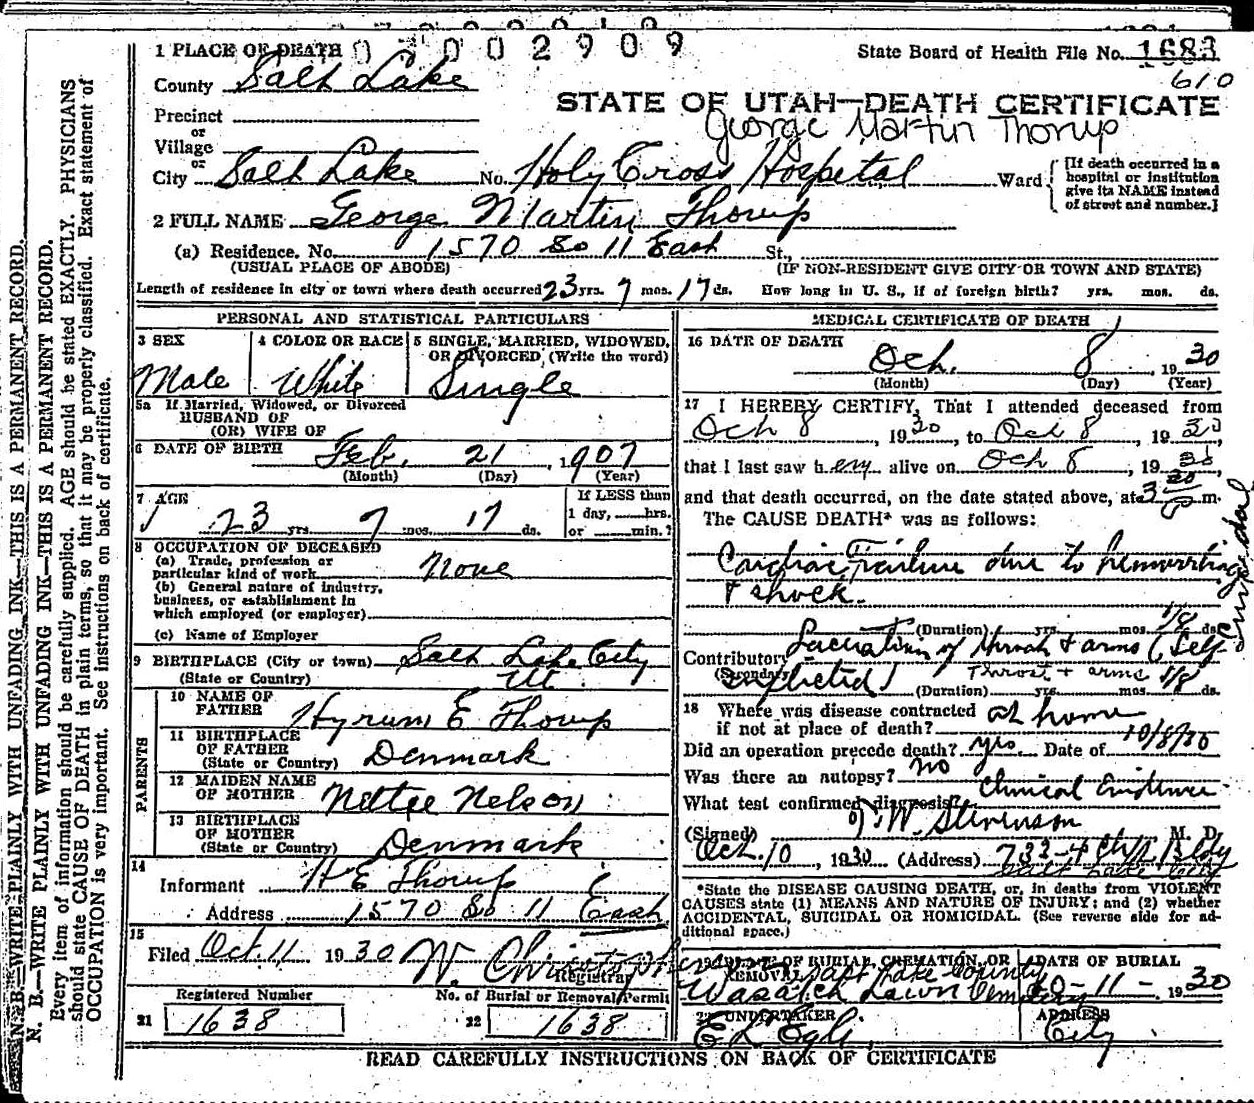 1 PLACE OF DEATH 0 3 0 0 2 9 0 9 State Board of Health File No. 1683
County Salt Lake 610
STATE OF UTAH—DEATH CERTIFICATE
Precinct George Martin Thorup
or
Village
or
City Salt Lake No. Holy Cross Hospital Ward [If death occurred in a hospital or institution give its NAME instead of street and number.]
2 FULL NAME George Martin Thorup
(a) Residence. No. 1570 So 11 East St.,
(USUAL PLACE OF ABODE) (IF NON-RESIDENT GIVE CITY OR TOWN AND STATE)
Length of residence in city or town where death occurred 23 yrs. 7 mos. 17 ds. How long in U. S., if of foreign birth? yrs. mos. ds.
PERSONAL AND STATISTICAL PARTICULARS
3 SEX 4 COLOR OR RACE 5 SINGLE, MARRIED, WIDOWED,
OR DIVORCED (Write the word)
Male White Single
5a If Married, Widowed, or Divorced
HUSBAND OF
(OR) WIFE OF
6 DATE OF BIRTH Feb. 21, 1907
(Month) (Day) (Year)
7 AGE If LESS than
1 day, hrs.
23 yrs. 7 mos. 17 ds. or min.?
8 OCCUPATION OF DECEASED
(a) Trade, profession or
particular kind of work None
(b) General nature of industry,
business, or establishment in
which employed (or employer)
(c) Name of Employer
9 BIRTHPLACE (City or town) Salt Lake City
(State or Country) Ut.
PARENTS
10 NAME OF
FATHER Hyrum E Thorup
11 BIRTHPLACE
OF FATHER
(State or Country) Denmark
12 MAIDEN NAME
OF MOTHER Nettie Nelson
13 BIRTHPLACE
OF MOTHER
(State or Country) Denmark
14
Informant H E Thorup
Address 1570 So 11 East
15
Filed Oct. 11 1930 W. Registrar
Registered Number No. of Burial or Removal Permit
21 1638 22 1638
MEDICAL CERTIFICATE OF DEATH
16 DATE OF DEATH
Oct. 8, 1930
(Month) (Day) (Year)
17 I HEREBY CERTIFY, That I attended deceased from
Oct 8, 1930, to Oct 8, 1930
that I last saw h alive on Oct 8, 1930
and that death occurred, on the date stated above, at 3 m.
The CAUSE DEATH* was as follows:
Cardiac Failure due to hemorrhage
+ shock. Suicidal
(Duration) yrs. mos. 1/8 ds.
Contributory Laceration of throat + arms (Self
(Secondary) inflicted) Throat + arms
(Duration) yrs. mos. 1/8 ds.
18 Where was disease contracted at home
if not at place of death?
Did an operation precede death? yes Date of 10/8/30
Was there an autopsy? no
What test confirmed diagnosis? Clinical Evidence
(Signed) Stevenson M. D.
Oct. 10, 1930 (Address) 732-4 Bldg
Salt Lake City
*State the DISEASE CAUSING DEATH, or, in deaths from VIOLENT
CAUSES state (1) MEANS AND NATURE OF INJURY; and (2) whether
ACCIDENTAL, SUICIDAL OR HOMICIDAL. (See reverse side for ad-
ditional space.)
19 PLACE OF BURIAL, CREMATION, OR DATE OF BURIAL
REMOVAL Salt Lake County
Wasatch Lawn Cemetery 10-11-1930
UNDERTAKER ADDRESS
City
READ CAREFULLY INSTRUCTIONS ON BACK OF CERTIFICATE
N. B.—WRITE PLAINLY WITH UNFADING INK—THIS IS A PERMANENT RECORD.
N. B.—WRITE PLAINLY WITH UNFADING INK—THIS IS A PERMANENT RECORD.
Every item of information should be carefully supplied. AGE should be stated EXACTLY. PHYSICIANS
should state CAUSE OF DEATH in plain terms, so that it may be properly classified. Exact statement of
OCCUPATION is very important. See instructions on back of certificate.